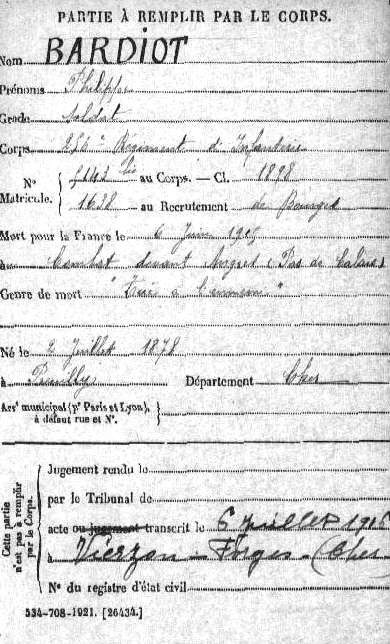 PARTIE À REMPLIR PAR LE CORPS.
Nom BARDIOT
Prénoms Philippe
Grade Soldat
Corps Régiment d'Infanterie
N° Matricule. { bis au Corps. — Cl. 1898
1638 au Recrutement de Bourges
Mort pour la France le 6 Juin 1915
à Combat devant (Pas de Calais)
Genre de mort "Tué à l'ennemi"
Né le 2 Juillet 1878
à Preuilly Département Cher
Arr¹ municipal (pʳ Paris et Lyon), à défaut rue et N°.
Cette partie n'est pas à remplir par le Corps.
Jugement rendu le
par le Tribunal de
acte ou jugement transcrit le 6 Juillet
à Vierzon-Forges (Cher
N° du registre d'état civil
534-708-1921. [26434.]